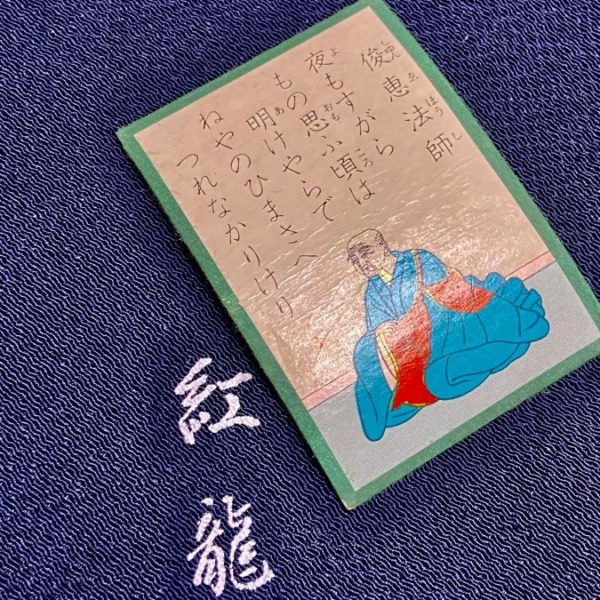 俊恵法師
夜もすがら
もの思ふ頃は
明けやらで
ねやのひまさへ
つれなかりけり
紅龍